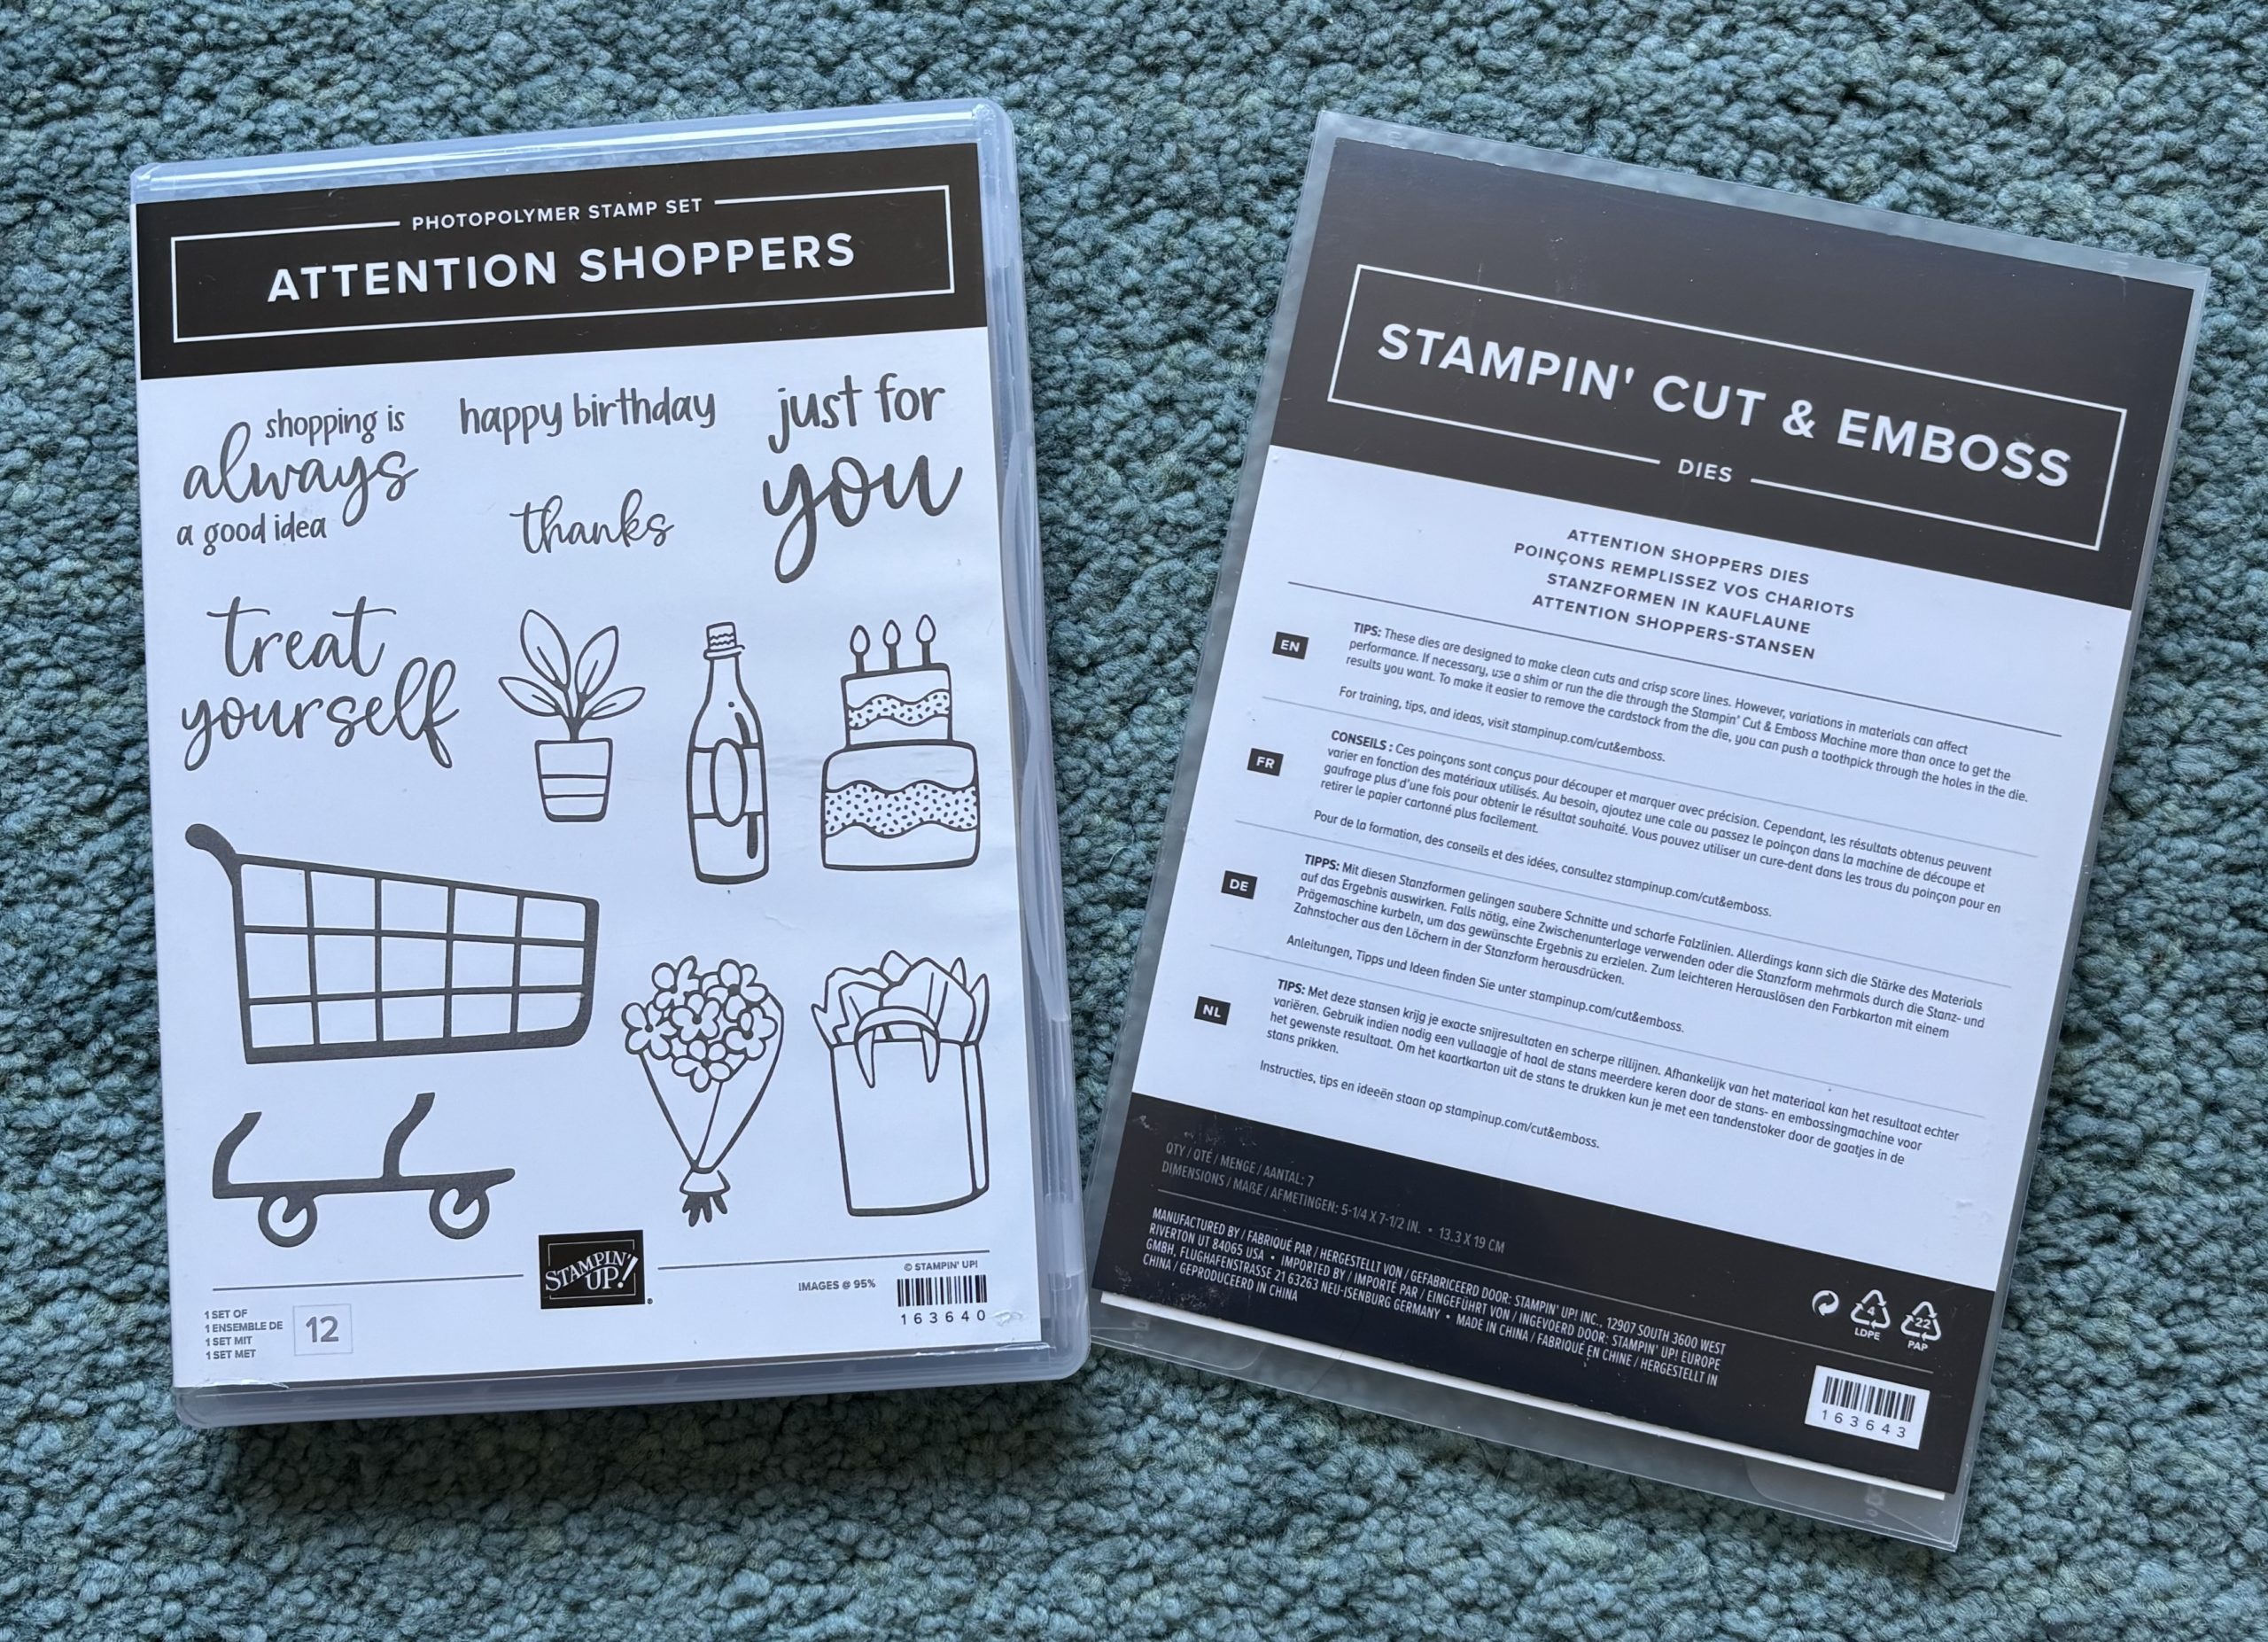 PHOTOPOLYMER STAMP SET
ATTENTION SHOPPERS
shopping is
always
a good idea
happy birthday
thanks
just for
you
treat
yourself
STAMPIN'
UP!
IMAGES @ 95%
© STAMPIN' UP!
163640
1 SET OF
1 ENSEMBLE DE
1 SET MIT
1 SET MET
12
STAMPIN' CUT & EMBOSS
DIES
ATTENTION SHOPPERS DIES
POINÇONS REMPLISSEZ VOS CHARIOTS
STANZFORMEN IN KAUFLAUNE
ATTENTION SHOPPERS-STANSEN
EN
TIPS: These dies are designed to make clean cuts and crisp score lines. However, variations in materials can affect
performance. If necessary, use a shim or run the die through the Stampin' Cut & Emboss Machine more than once to get the
results you want. To make it easier to remove the cardstock from the die, you can push a toothpick through the holes in the die.
For training, tips, and ideas, visit stampinup.com/cut&emboss.
FR
CONSEILS : Ces poinçons sont conçus pour découper et marquer avec précision. Cependant, les résultats obtenus peuvent
varier en fonction des matériaux utilisés. Au besoin, ajoutez une cale ou passez le poinçon dans la machine de découpe et
gaufrage plus d'une fois pour obtenir le résultat souhaité. Vous pouvez utiliser un cure-dent dans les trous du poinçon pour en
retirer le papier cartonné plus facilement.
Pour de la formation, des conseils et des idées, consultez stampinup.com/cut&emboss.
DE
TIPPS: Mit diesen Stanzformen gelingen saubere Schnitte und scharfe Falzlinien. Allerdings kann sich die Stärke des Materials
auf das Ergebnis auswirken. Falls nötig, eine Zwischenunterlage verwenden oder die Stanzform mehrmals durch die Stanz- und
Prägemaschine kurbeln, um das gewünschte Ergebnis zu erzielen. Zum leichteren Herauslösen den Farbkarton mit einem
Zahnstocher aus den Löchern in der Stanzform herausdrücken.
Anleitungen, Tipps und Ideen finden Sie unter stampinup.com/cut&emboss.
NL
TIPS: Met deze stansen krijg je exacte snijresultaten en scherpe rillijnen. Afhankelijk van het materiaal kan het resultaat echter
variëren. Gebruik indien nodig een vullaagje of haal de stans meerdere keren door de stans- en embossingmachine voor
het gewenste resultaat. Om het kaartkarton uit de stans te drukken kun je met een tandenstoker door de gaatjes in de
stans prikken.
Instructies, tips en ideeën staan op stampinup.com/cut&emboss.
QTY / QTÉ / MENGE / AANTAL: 7
DIMENSIONS / MAßE / AFMETINGEN: 5-1/4 X 7-1/2 IN. • 13.3 X 19 CM
MANUFACTURED BY / FABRIQUÉ PAR / HERGESTELLT VON / GEFABRICEERD DOOR: STAMPIN' UP! INC., 12907 SOUTH 3600 WEST
RIVERTON UT 84065 USA • IMPORTED BY / IMPORTÉ PAR / EINGEFÜHRT VON / INGEVOERD DOOR: STAMPIN' UP! EUROPE
GMBH, FLUGHAFENSTRASSE 21 63263 NEU-ISENBURG GERMANY • MADE IN CHINA / FABRIQUÉ EN CHINE / HERGESTELLT IN
CHINA / GEPRODUCEERD IN CHINA
4
LDPE
22
PAP
163643